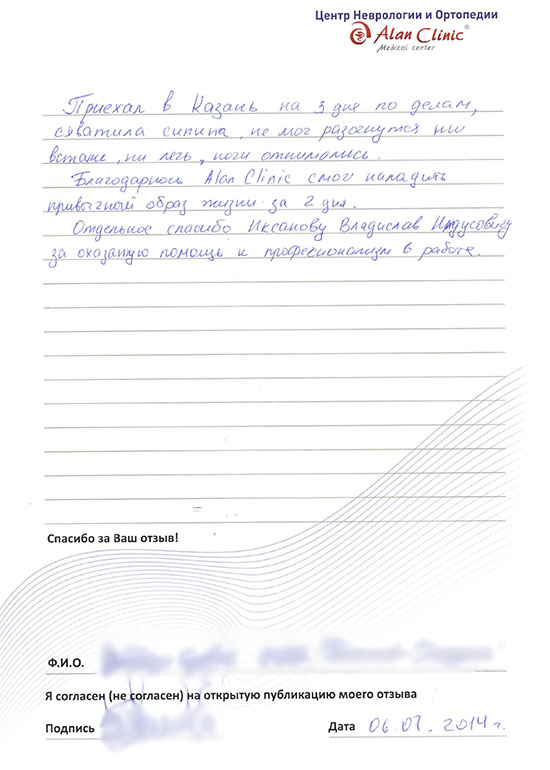 Центр Неврологии и Ортопедии
Alan Clinic®
Medical center
Приехал в Казань на 3 дня по делам,
схватила спина, не мог разогнутся ни
встать, ни лечь, ноги отнимались.
Благодарность Alan Clinic смог наладить
привычный образ жизни за 2 дня.
Отдельное спасибо Иксанову Владислав Индусовичу
за оказаную помощь и професионализм в работе.
Спасибо за Ваш отзыв!
Ф.И.О.
Я согласен (не согласен) на открытую публикацию моего отзыва
Подпись
Дата 06.07.2014 г.